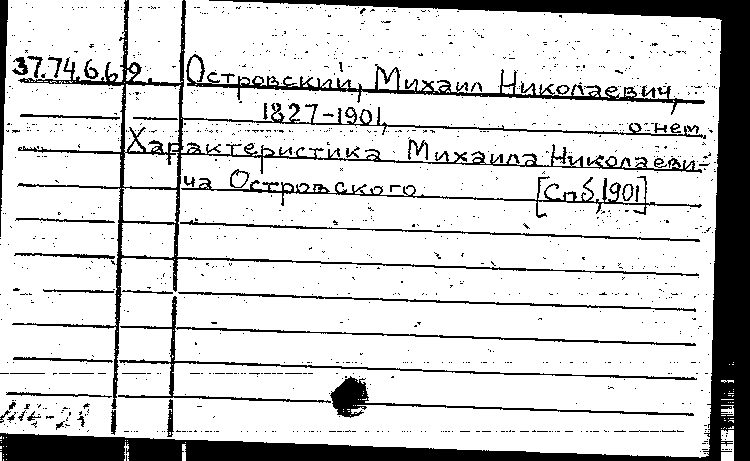 37.74.6.62. Островский, Михаил Николаевич,
1827-1901,
о нем.
Характеристика Михаила Николаеви-
ча Островского. [Спб, 1901]